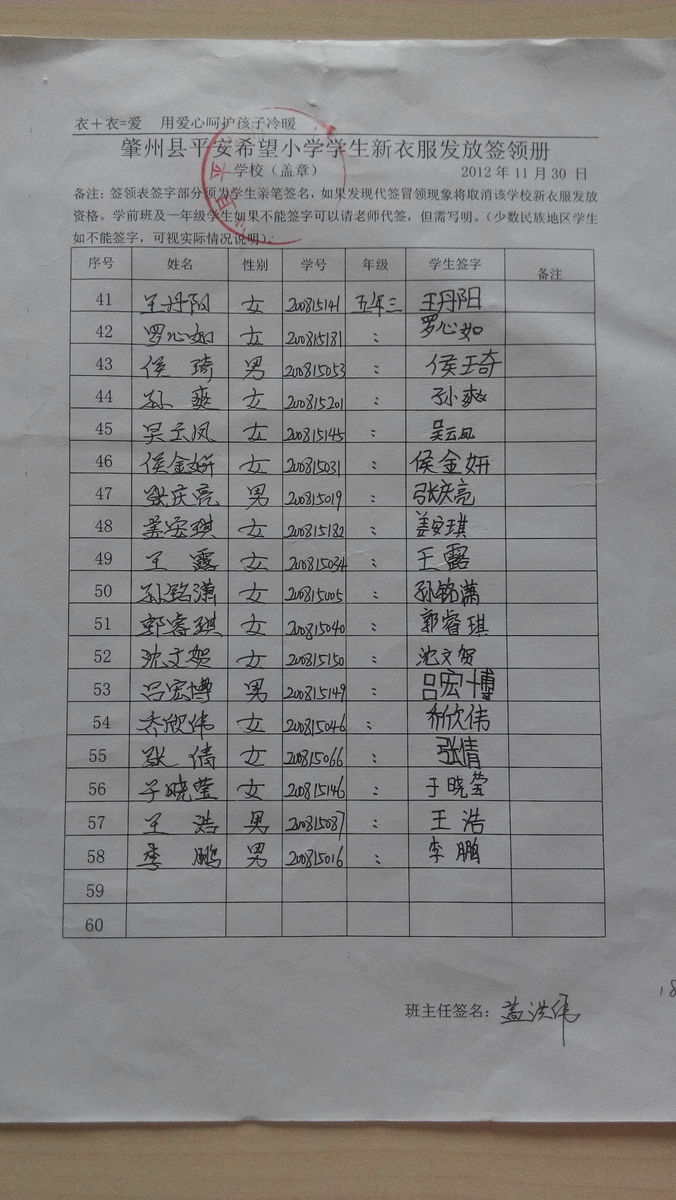 衣+衣=爱 用爱心呵护孩子冷暖
肇州县平安希望小学学生新衣服发放签领册
学校（盖章） 2012年11月30日
备注：签领表签字部分须为学生亲笔签名，如果发现代签冒领现象将取消该学校新衣服发放
资格。学前班及一年级学生如果不能签字可以请老师代签，但需写明。（少数民族地区学生
如不能签字，可视实际情况说明）：
序号 姓名 性别 学号 年级 学生签字 备注
41 王丹阳 女 200815141 五年三 王丹阳
42 罗心如 女 200815181 : 罗心如
43 侯琦 男 200815053 : 侯琦
44 孙爽 女 200815201 : 孙爽
45 吴云凤 女 200815145 : 吴云凤
46 侯金妍 女 200815031 : 侯金妍
47 张庆亮 男 200815019 : 张庆亮
48 姜安琪 女 200815182 : 姜安琪
49 王露 女 200815034 : 王露
50 孙铭潇 女 200815005 : 孙铭潇
51 郭睿琪 女 200815040 : 郭睿琪
52 沈文贺 女 200815150 : 沈文贺
53 吕宏博 男 200815149 : 吕宏博
54 乔欣伟 女 200815046 : 乔欣伟
55 张倩 女 200815066 : 张倩
56 于晓莹 女 200815146 : 于晓莹
57 王浩 男 200815087 : 王浩
58 李鹏 男 200815016 : 李鹏
59
60
班主任签名：盖洪伟
18